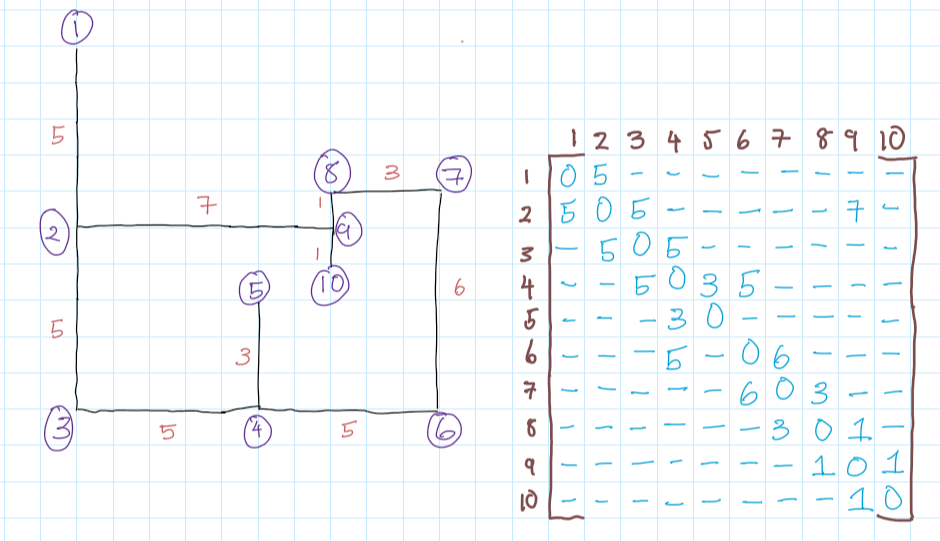 1
5
8
3
7
7
1
2
9
1
5
10
6
5
3
3
5
4
5
6
1 2 3 4 5 6 7 8 9 10
1 0 5 - - - - - - - -
2 5 0 5 - - - - - 7 -
3 - 5 0 5 - - - - - -
4 - - 5 0 3 5 - - - -
5 - - - 3 0 - - - - -
6 - - - 5 - 0 6 - - -
7 - - - - - 6 0 3 - -
8 - - - - - - 3 0 1 -
9 - - - - - - - 1 0 1
10 - - - - - - - - 1 0